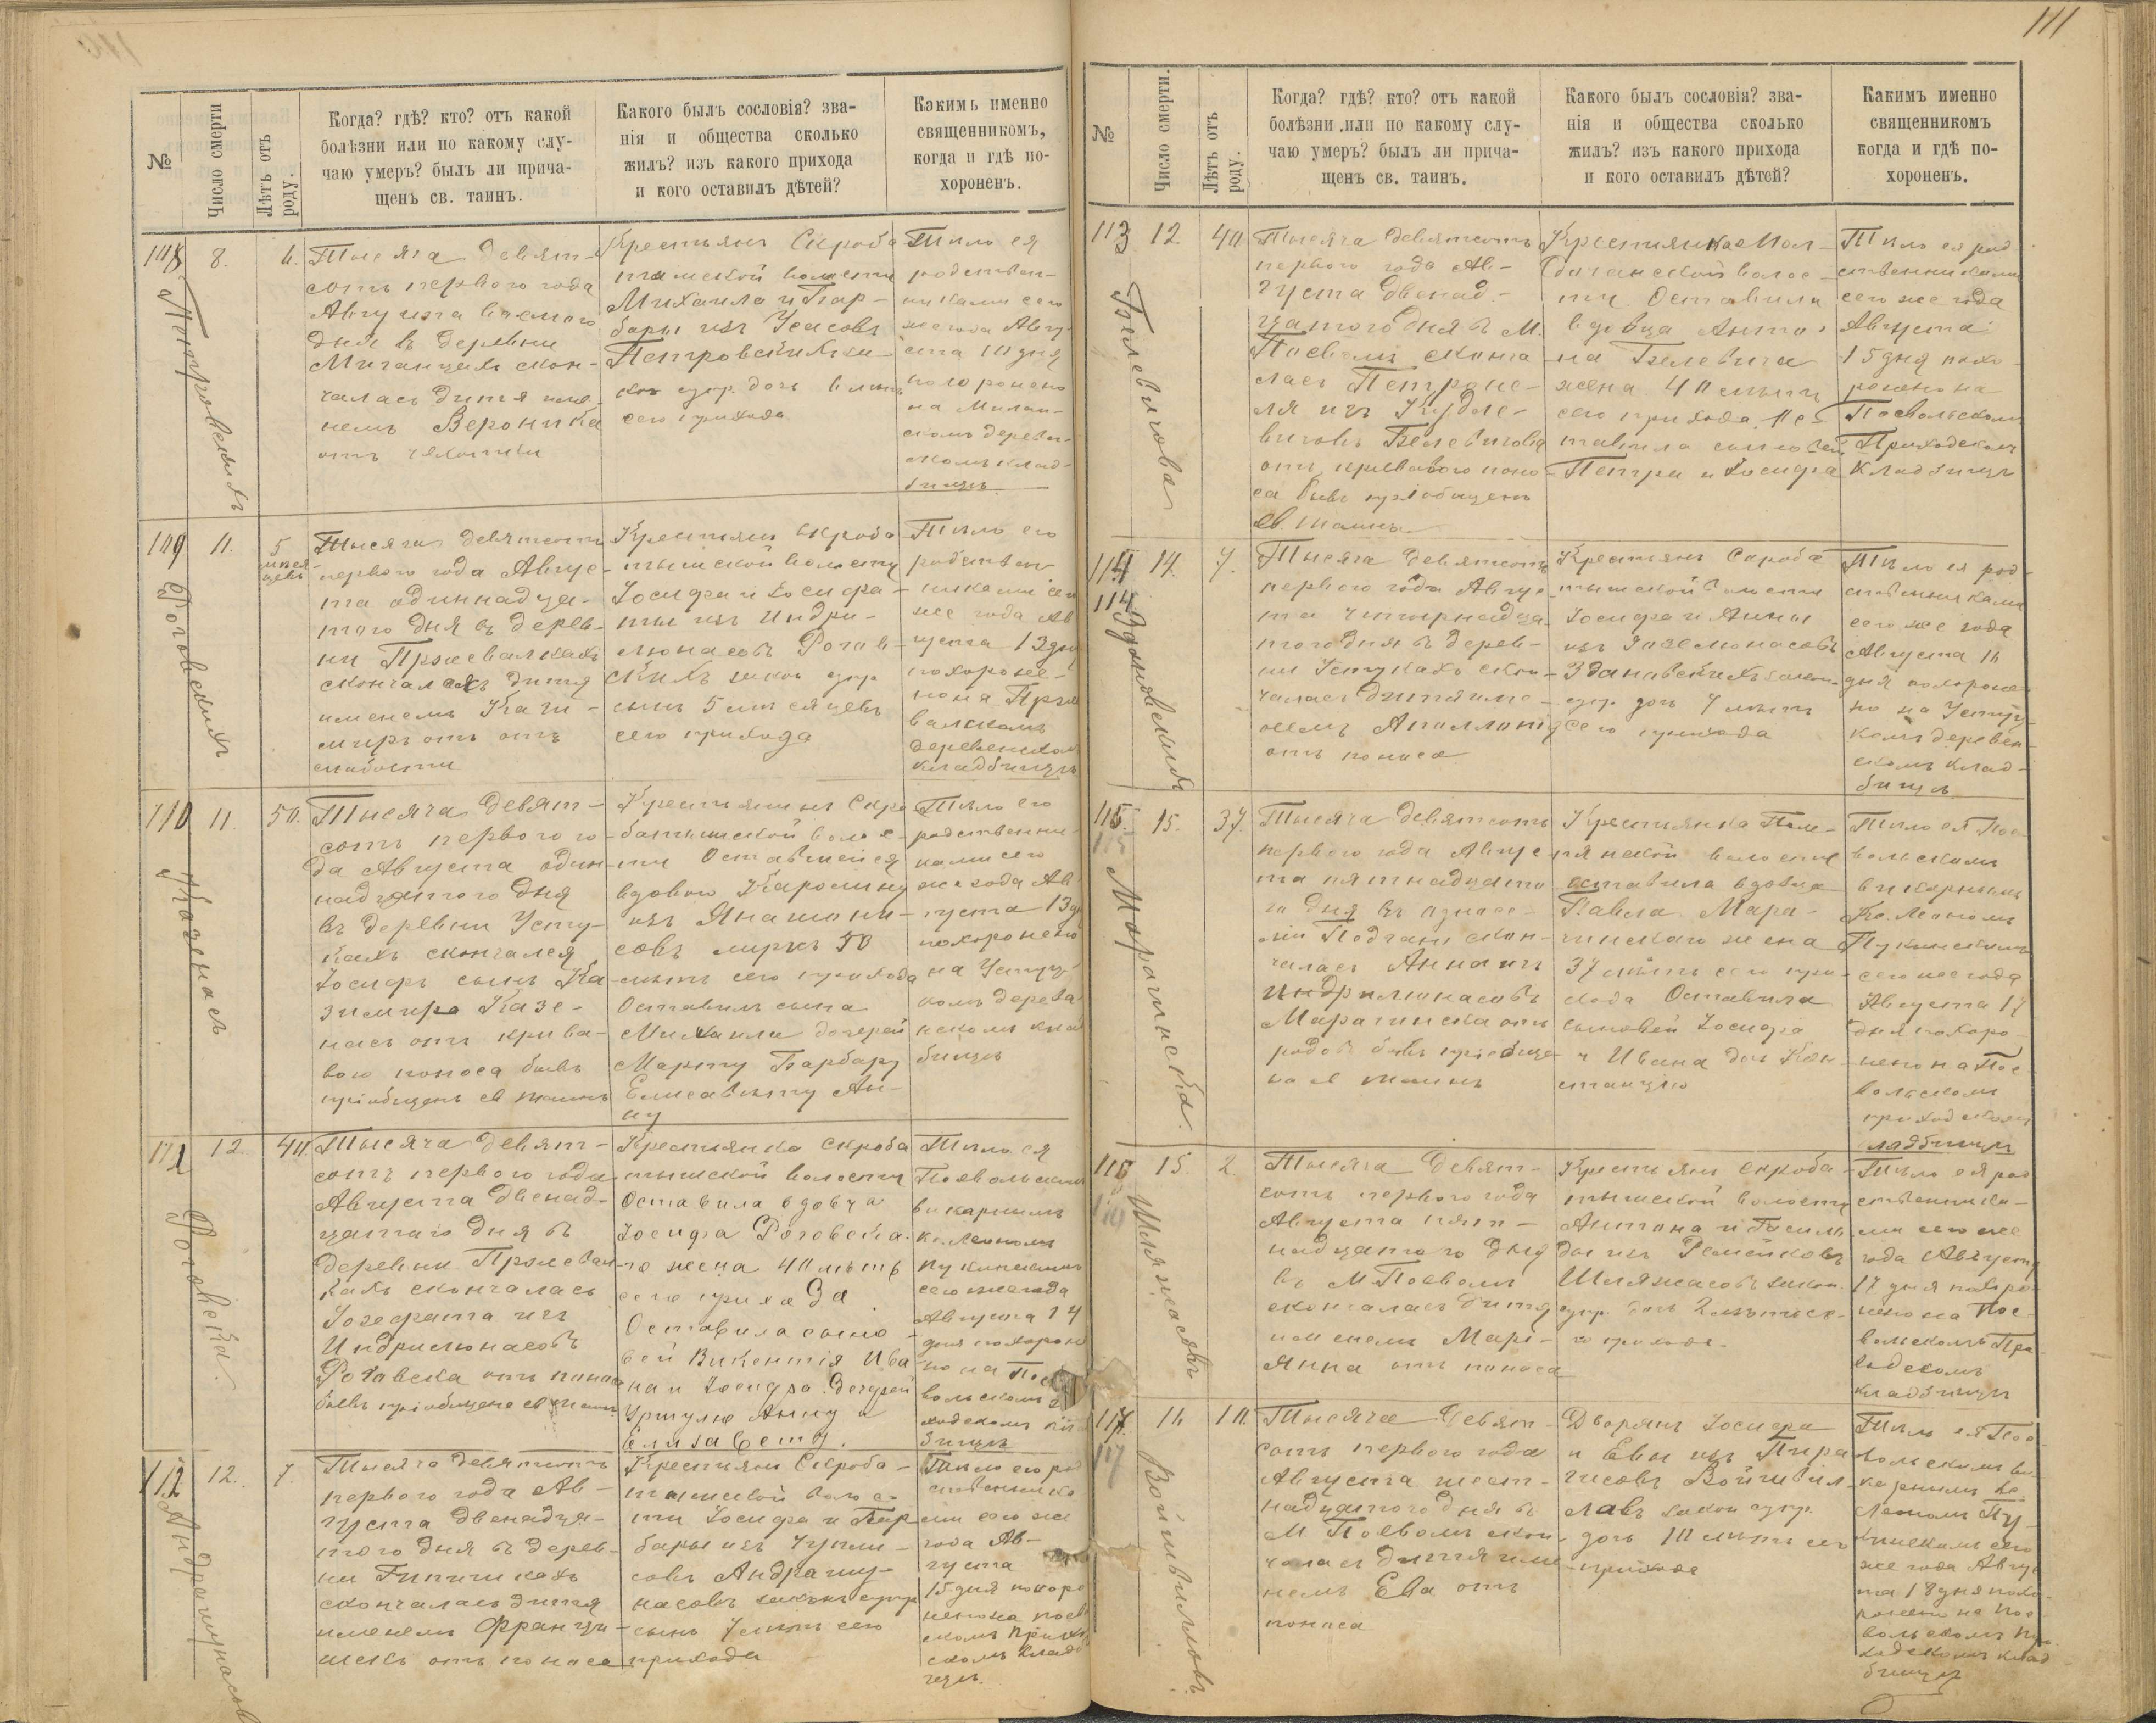 111
№
Число смерти
Лѣтъ отъ роду.
Когда? гдѣ? кто? отъ какой
болѣзни или по какому слу-
чаю умеръ? былъ ли прича-
щенъ св. таинъ.
Какого былъ сословія? зва-
нія и общества сколько
жилъ? изъ какого прихода
и кого оставилъ дѣтей?
Какимъ именно
священникомъ,
когда и гдѣ по-
хороненъ.
108
8.
Петровскихъ
Тысяча девят-
сотъ перваго года
Августа восьмого
дня въ деревни
скон-
чалась дитя име-
немъ Вероника
отъ чахотки
Крестьянъ Скроба
тышской волости
Михаила и Бар-
бары изъ
Петровскихъ за-
кон. супр. дочь
сего прихода
Тѣло ея
родствен-
никами сего
же года Авгу-
ста 10 дня
похоронено
на
скомъ деревен-
скомъ клад-
бищѣ
109
11.
5
мѣся
цевъ
Роговскихъ
Тысяча девятсотъ
перваго года Авгус-
та одиннадца-
того дня въ дерев-
ни Пржевалкахъ
скончалась дитя
именемъ Кази-
миръ отъ
слабости
Крестьянъ Скроба
тышской волости
Іосифа и Іосифа-
ты изъ Индри-
люнасовъ Рогов-
скихъ закон. супр.
сынъ 5 мѣсяцевъ
сего прихода
Тѣло его
родствен-
никами сего
же года Ав
густа 13 дня
похороне-
но на Прже
валскомъ
деревенскомъ
кладбищѣ
110
11.
50.
Казенасъ
Тысяча девят-
сотъ перваго го-
да Августа один
надцатого дня
въ деревни Усту-
кахъ скончался
Іосифъ сынъ Ка-
зимира Казе-
насъ отъ крова-
ваго поноса бывъ
пріобщенъ св таинъ
Крестьянинъ Скро
батышской волос-
ти Оставшейся
вдовою Каролину
изъ
совъ мужъ 50
лѣтъ сего прихода
Оставилъ сына
Михаила дочерей
Марту Барбару
Елисавету Ан-
ну
Тѣло его
родственни-
ками сего
же года Ав
густа 13 дня
похоронено
на Усту-
комъ деревен
скомъ клад
бищѣ
111
12.
40.
Роговска.
Тысяча девят-
сотъ перваго года
Августа двенад-
цатаго дня въ
деревни Пржевал-
кахъ скончалась
Іозефата изъ
Индрилюнасовъ
Роговска отъ поноса
бывъ пріобщена св таинъ
Крестьянка Скроба
тышской волости
Оставила вдовца
Іосифа Роговска-
го жена 40 лѣтъ
сего прихода
Оставила сыно-
вей Викентія Ива
на и Іосифа Дочерей
Уршулю Анну и
Елизабету.
Тѣло ея
Посвольскимъ
викарнымъ
Кс. Леономъ
Пукинскимъ
сего же года
Августа 14
дня похороне
но на Пос
вольскомъ
112
12.
7.
Андрашунасовъ
Тысяча девятсотъ
перваго года Ав-
густа двенадца-
того дня въ дерев-
ни
скончалась дитя
именемъ Францы-
шекъ отъ поноса
Крестьянъ Скроба-
тышской волос-
ти Іосифа и Бар
бары изъ
совъ Андрашу-
насовъ закон. супр.
сынъ 7 лѣтъ сего
прихода
Тѣло его род
ственника
ми сего же
года Ав-
густа
15 дня похоро
нено на
№
Число смерти.
Лѣтъ отъ роду.
Когда? гдѣ? кто? отъ какой
болѣзни или по какому слу-
чаю умеръ? былъ ли прича-
щенъ св. таинъ.
Какого былъ сословія? зва-
нія и общества сколько
жилъ? изъ какого прихода
и кого оставилъ дѣтей?
Какимъ именно
священникомъ
когда и гдѣ по-
хороненъ.
113
12.
40
Белевичова
Тысяча девятсотъ
перваго года Ав-
густа двенад-
цатого дня въ М.
Посволи сконча
лась Петроне-
ля изъ Курде-
вичовъ Белевичова
отъ кроваваго поно-
са бывъ пріобщенъ
св. таинъ
волос-
ти. Оставила
вдовца Анто-
на Белевича
жена 40 лѣтъ
сего прихода. Ос
тавила сыновей
Петра и Іосифа
Тѣло ея род
ственниками
сего же года
Августа
15 дня похо-
ронено на
Посвольскомъ
Приходскомъ
Кладбищѣ
114
114
14.
7.
Здановскихъ
Тысяча девятсотъ
перваго года Авгус-
та четырнадца-
того дня въ дерев-
ни Устукахъ скон-
чалась дитя име-
немъ Аполлонія
отъ поноса
Крестьянъ Скроба
тышской волости
Іосифа и Анны
изъ
Здановскихъ закон-
супр. дочь 7 лѣтъ
сего прихода
Тѣло ея род-
ственниками
сего же года
Августа 16
дня похороне-
но на Усту-
комъ деревен-
скомъ клад-
бищѣ
115.
115
15.
37.
Марачинска.
Тысяча девятсотъ
перваго года Авгус
та пятнадцата
го дня въ
скон-
чалась Анна изъ
Индрилюнасовъ
Марачинска отъ
родовъ бывъ пріобще-
на св таинъ
Крестьянка
волости
оставила вдовца
Павла Мара-
чинскаго жена
37 лѣтъ сего при-
хода Оставила
сыновей Іосифа
и Ивана дочь Кон-
станцію
Тѣло ея Пос-
вольскимъ
викарнымъ
Кс. Леономъ
Пукинскимъ
сего же года
Августа 17
дня похоро-
нено на Пос
вольскомъ
приходскомъ
кладбищѣ
116
15.
2.
Шляжасовъ
Тысяча девят-
сотъ перваго года
Августа пят-
надцатого дня
въ М. Посволи
скончалась дитя
именемъ Мары-
янна отъ поноса
Крестьянъ Скроба-
тышской волости
Антона и
изъ Ремейковъ
Шляжасовъ закон.
супр. дочь 2 лѣтъ се-
го прихода.
Тѣло ея род
ственника-
ми сего же
года Августа
17 дня похоро
нено на Пос-
вольскомъ При
ходскомъ
кладбищѣ
117.
117
16
10.
Войшвиловъ.
Тысяча девят-
сотъ перваго года
Августа шест-
надцатого дня въ
М Посволи скон-
чалась дитя име-
немъ Ева отъ
поноса
Дворянъ Іосифа
и Евы изъ
Войшвил-
ловъ закон супр.
дочь 10 лѣтъ сего
прихода
Тѣло ея Пос-
вольскимъ ви-
карнымъ Кс.
Леономъ Пу-
кинскимъ сего
же года Авгус
та 18 дня похо-
ронено на Пос-
вольскомъ при-
ходскомъ клад
бищѣ